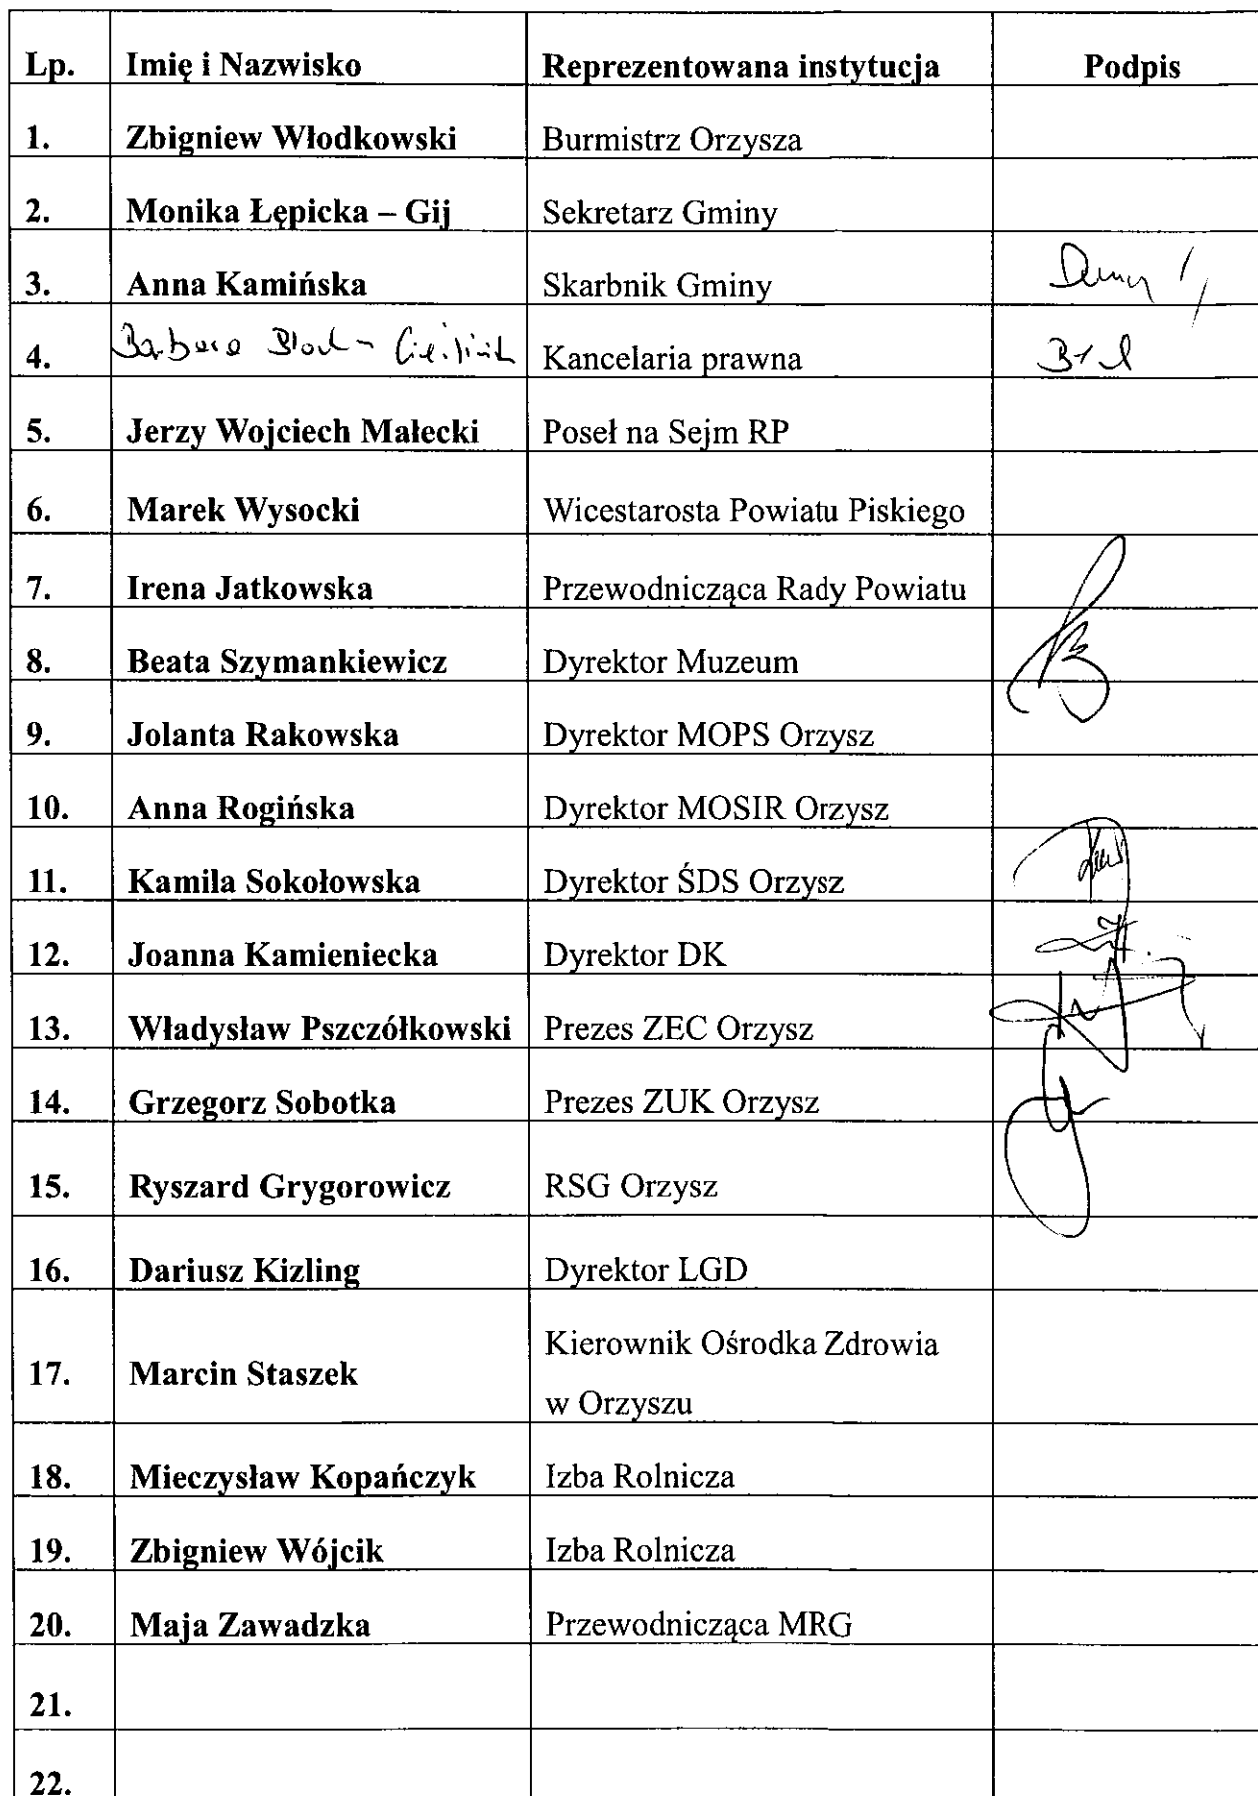 Lp. Imię i Nazwisko Reprezentowana instytucja Podpis
1. Zbigniew Włodkowski Burmistrz Orzysza
2. Monika Łępicka – Gij Sekretarz Gminy
3. Anna Kamińska Skarbnik Gminy
4. Barbara Kancelaria prawna
5. Jerzy Wojciech Małecki Poseł na Sejm RP
6. Marek Wysocki Wicestarosta Powiatu Piskiego
7. Irena Jatkowska Przewodnicząca Rady Powiatu
8. Beata Szymankiewicz Dyrektor Muzeum
9. Jolanta Rakowska Dyrektor MOPS Orzysz
10. Anna Rogińska Dyrektor MOSIR Orzysz
11. Kamila Sokołowska Dyrektor ŚDS Orzysz
12. Joanna Kamieniecka Dyrektor DK
13. Władysław Pszczółkowski Prezes ZEC Orzysz
14. Grzegorz Sobotka Prezes ZUK Orzysz
15. Ryszard Grygorowicz RSG Orzysz
16. Dariusz Kizling Dyrektor LGD
17. Marcin Staszek Kierownik Ośrodka Zdrowia
w Orzyszu
18. Mieczysław Kopańczyk Izba Rolnicza
19. Zbigniew Wójcik Izba Rolnicza
20. Maja Zawadzka Przewodnicząca MRG
21.
22.